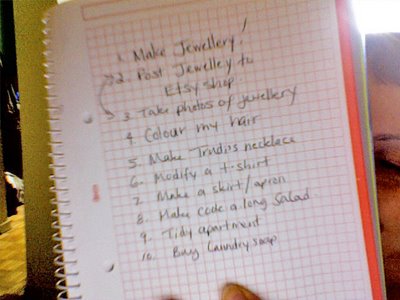 1. Make Jewellery!
2. Post Jewelley to
Etsy shop
3. Take photos of jewellery
4. Colour my hair
5. Make Trudis necklace
6. Modify a t-shirt
7. Make a skirt/apron
8. Make code a long salad
9. Tidy apartment
10. Buy laundry soap